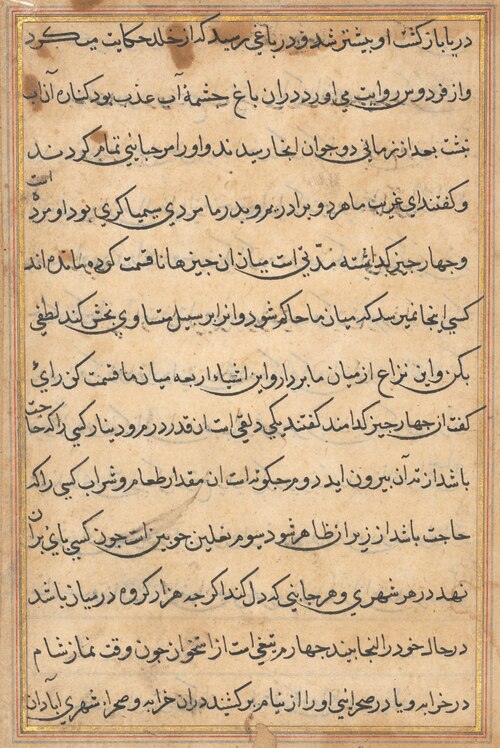 دریا باز کشت او بیشتر شد و در باغی رسید که از خلد حکایت میکرد
و از فردوس روایت می اورد در ان باغ چشمهٔ آب عذب بود کناره آن آب
بنشت بعد از زمانی دو جوان انجا رسیدند و او را مرحبایی تمام کردند
و کفتند ای غریب ما هر دو برادریم و پدر ما مردی سیمیا کری بود او مرده است
و جهار چیز کذاشته مدّتی است میان ان چیزها نا قسمت کرده مانده اند
کسی اینجا نمیرسد که میان ما حاکم شود و انرا بر سبیل متساوی بخش کند لطفی
بکن و این نزاع از میان ما بردار و این اشیاء اربعه میان ما قسمت کن رای
کفت ان جهار چیز کدامند کفتند یکی دلقی است ان قدر درم و دینار کسی را که حاجت
باشد از ته آن بیرون اید دوم جبکوته است ان مقدار طعام و شراب کسی را که
حاجت باشد از زیر ان ظاهر شود سوم نعلین جوبین است جون کسی بای بران
نهد در هر شهری و هر جایی که دل کند اکرجه هزار کروه در میان باشد
در حال خود را انجا بیند جهارم تیغی است از استخوان جون وقت نماز شام
در خرابه و یا در صحرایی او را از نیام برکشند در ان خرابه و صحرا شهری ابادان